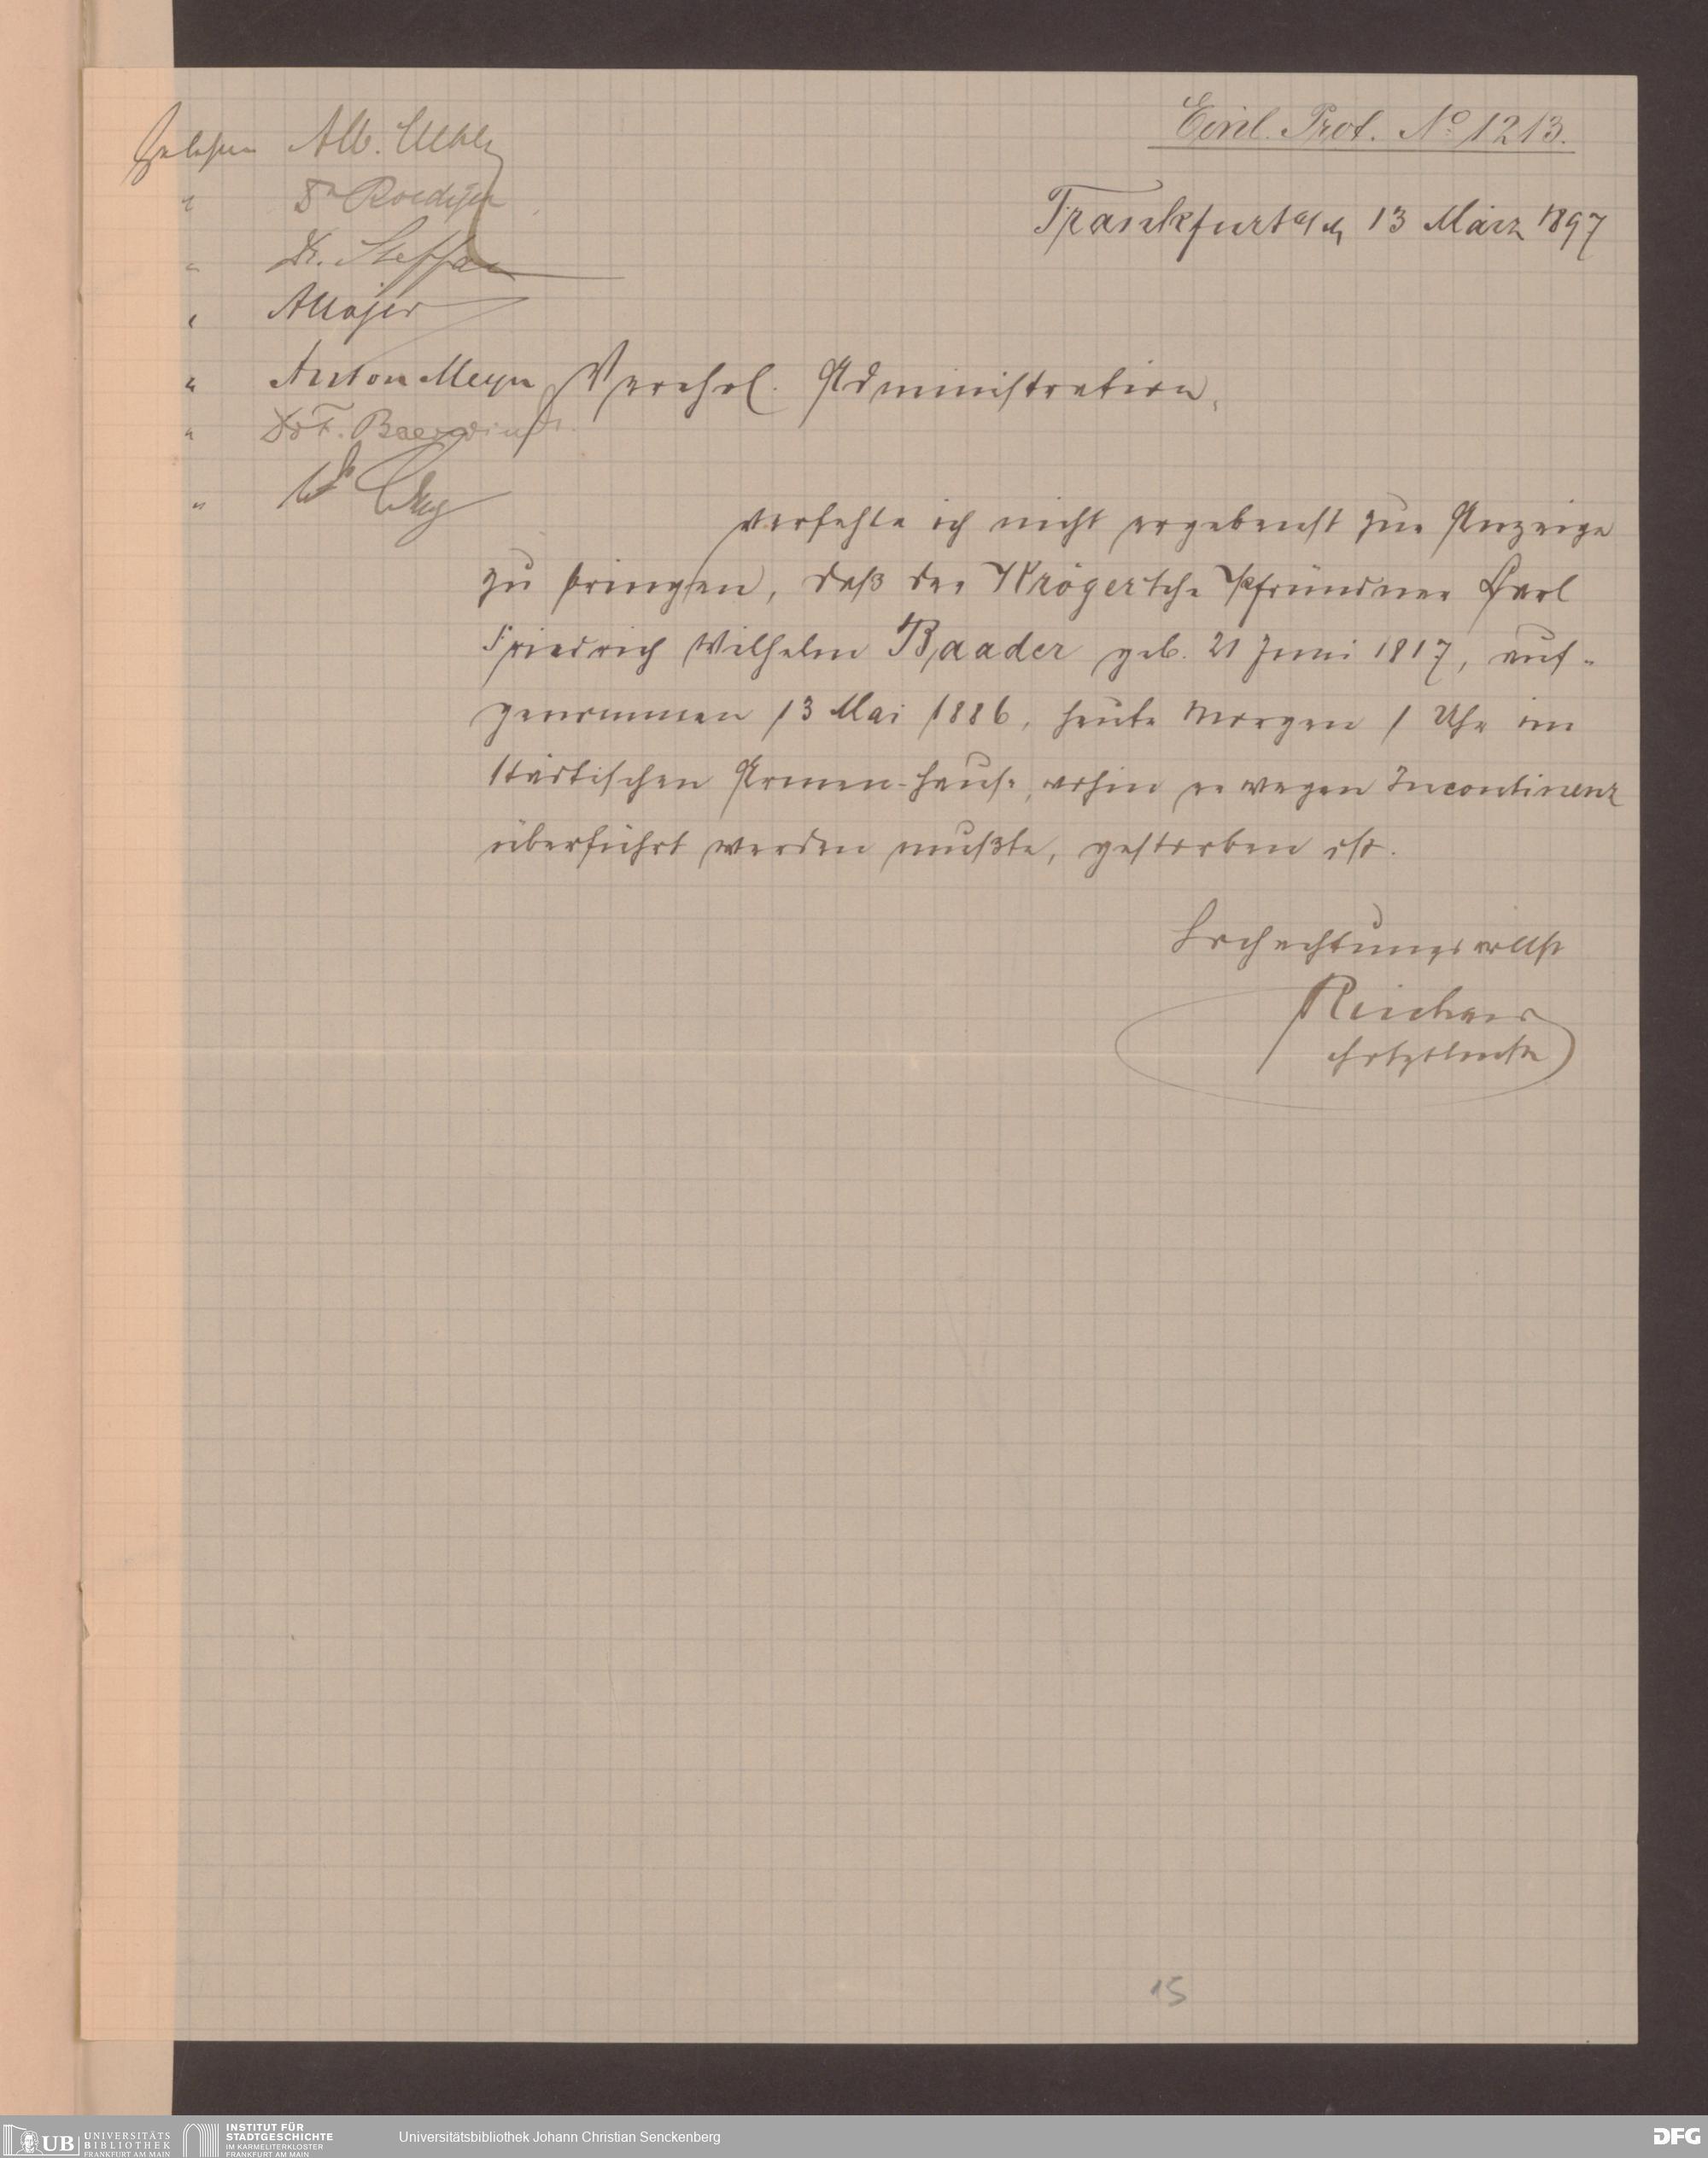 Einl. Prot. No 1213.
Frankfurt a/M 13 März 1897
Gelesen Alb. Metzler
" Dr Roediger
" Dr. Steffan
" A Majer
" Anton Meyer
" Dr F. Baerwindt.
" Dr
Verehrl. Administration,
verfehle ich nicht ergebenst zur Anzeige
zu bringen, daß der Kröger'sche Pfründner Carl
Friedrich Wilhelm Baader geb. 21 Juni 1817, auf-
genommen 13 Mai 1886, heute Morgen 1 Uhr im
städtischen Armen-Hause, wohin er wegen Incontinenz
überführt werden mußte, gestorben ist.
Hochachtungsvollst
Reichard
15
UB UNIVERSITÄTS
BIBLIOTHEK
FRANKFURT AM MAIN
INSTITUT FÜR
STADTGESCHICHTE
IM KARMELITERKLOSTER
FRANKFURT AM MAIN
Universitätsbibliothek Johann Christian Senckenberg
DFG